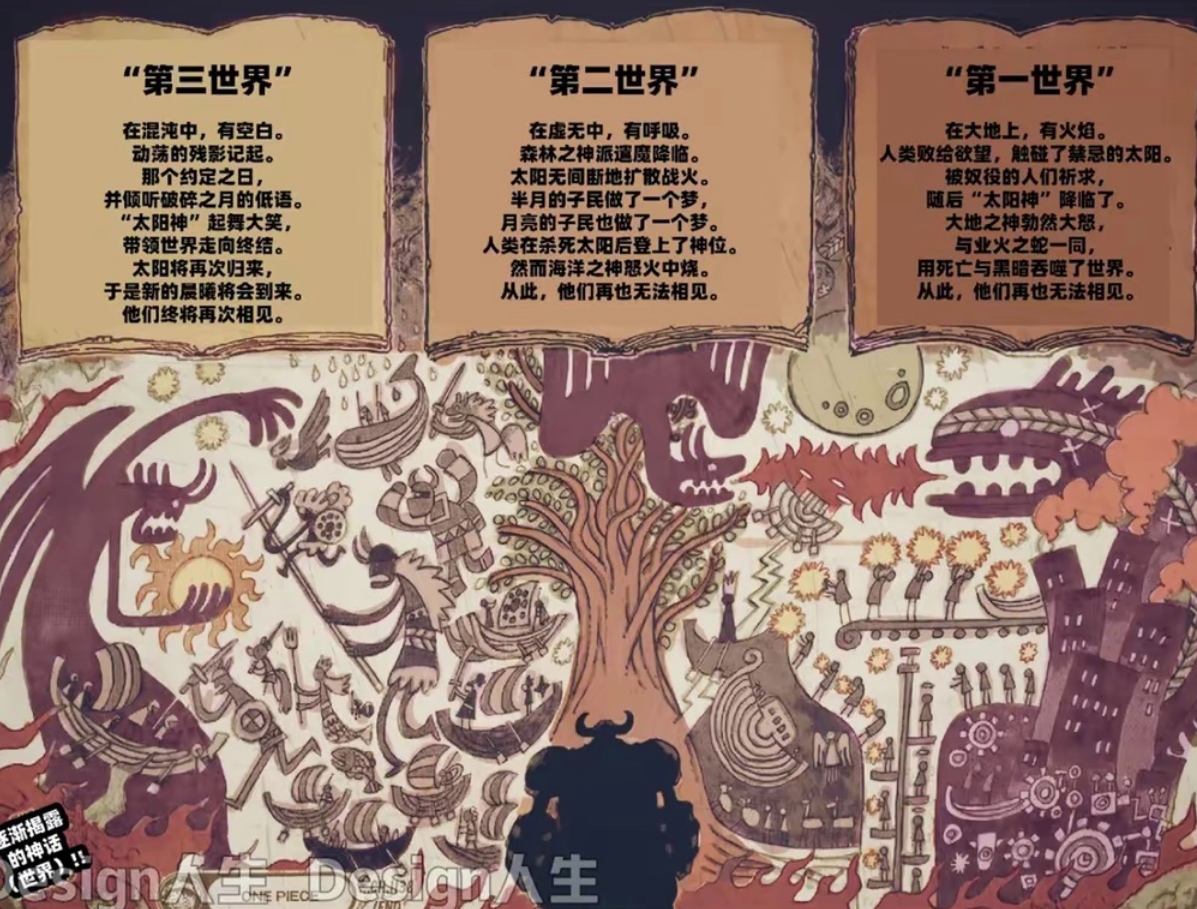 “第三世界”
在混沌中，有空白。
动荡的残影记起。
那个约定之日，
并倾听破碎之月的低语。
“太阳神”起舞大笑，
带领世界走向终结。
太阳将再次归来，
于是新的晨曦将会到来。
他们终将再次相见。
“第二世界”
在虚无中，有呼吸。
森林之神派遣魔降临。
太阳无间断地扩散战火。
半月的子民做了一个梦，
月亮的子民也做了一个梦。
人类在杀死太阳后登上了神位。
然而海洋之神怒火中烧。
从此，他们再也无法相见。
“第一世界”
在大地上，有火焰。
人类败给欲望，触碰了禁忌的太阳。
被奴役的人们祈求，
随后“太阳神”降临了。
大地之神勃然大怒，
与业火之蛇一同，
用死亡与黑暗吞噬了世界。
从此，他们再也无法相见。
逐渐揭露
的神话
（世界）!!
Design人生 Design人生
ONE PIECE
END